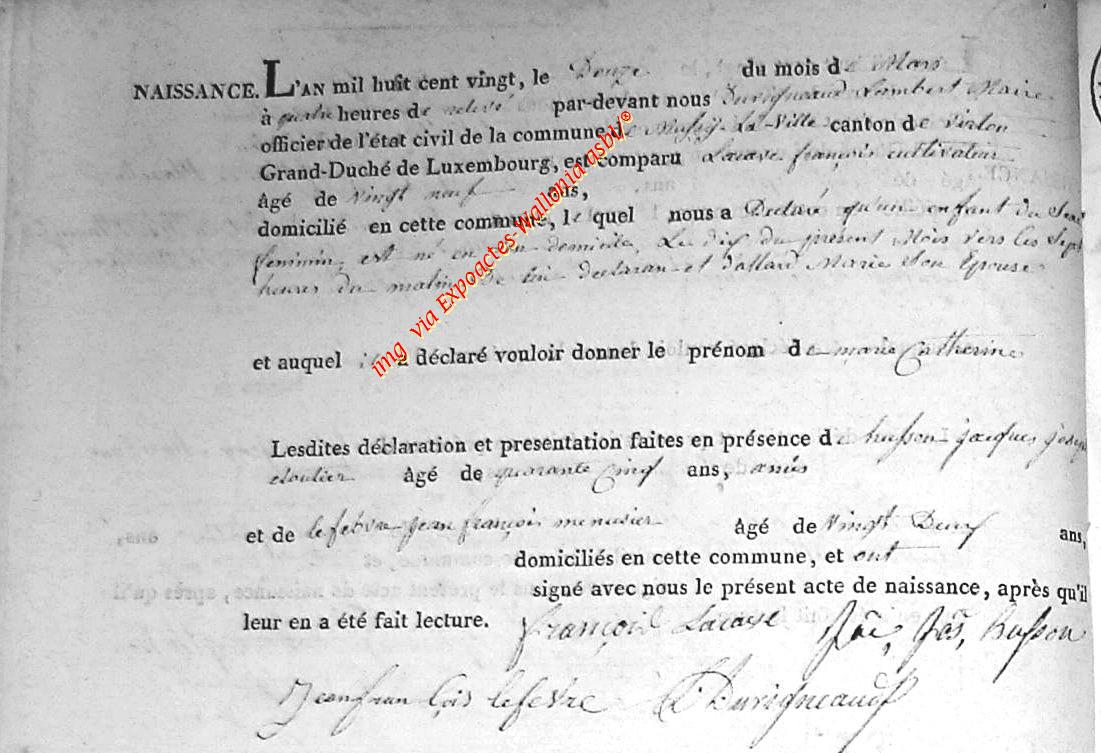 NAISSANCE. L'AN mil huit cent vingt, le Douze du mois de Mars
à quatre heures de relevé par-devant nous Duvigneaud Lambert Maire
officier de l'état civil de la commune de Mussy-La-Ville canton de Virton
Grand-Duché de Luxembourg, est comparu Lacave françois cultivateur
âgé de vingt neuf ans,
domicilié en cette commune, le quel nous a Declaré qu'un enfant du Sexe
feminin est né en son domicile, Le dix du present Mois vers les Sept
heures du matin, de lui declaran et d'allard Marie Son Epouse
et auquel il a déclaré vouloir donner le prénom de marie Catherine
Lesdites déclaration et presentation faites en présence de husson jacques joseph
cloutier âgé de quarante cinq ans, amis
et de lefebvre jean françois menusier âgé de vingt Deux ans,
domiciliés en cette commune, et ont
signé avec nous le présent acte de naissance, après qu'il
leur en a été fait lecture. françois Lacave Jac, Jos, husson
Jean fran çois lefevre Duvigneaud
img via Expoactes-Wallonia asbl ©